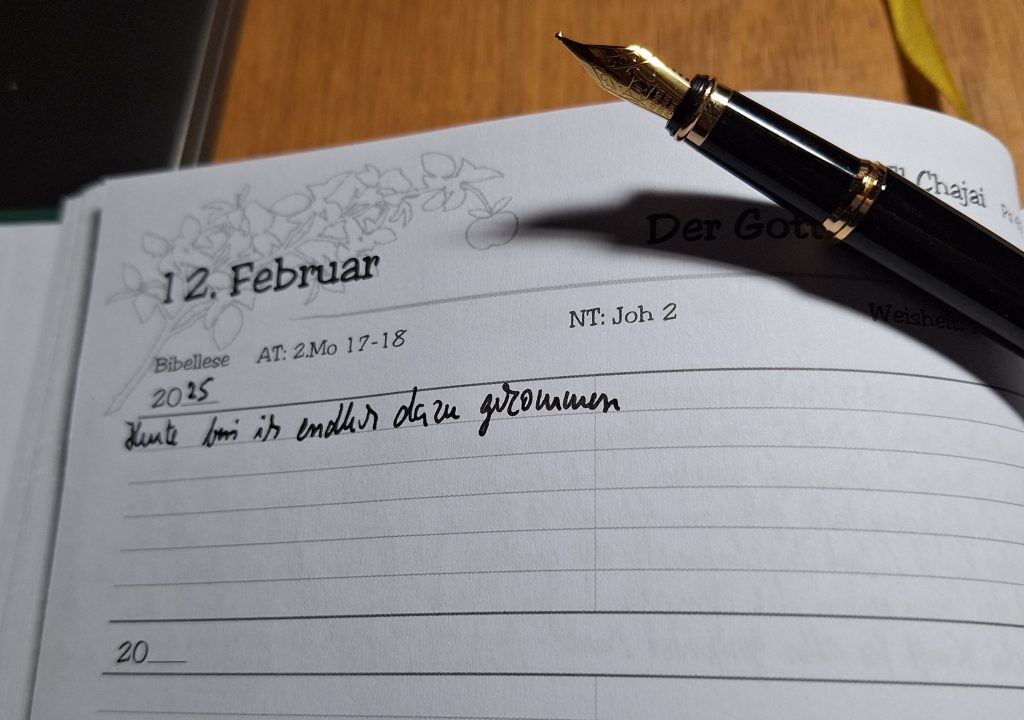 El Chajai
Der Gott
12. Februar
Bibellese AT: 2.Mo 17-18 NT: Joh 2 Weisheit
2025
Heute bin ich endlich dazu gekommen
20___